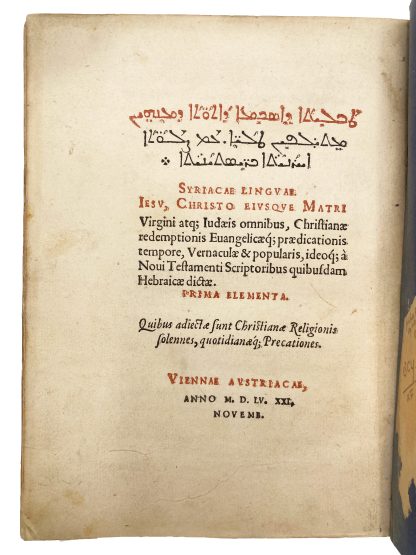 ܥܡ ܨܠܘܬܐ
SYRIACAE LINGUAE
IESV, CHRISTO EIVSQVE MATRI
Virgini atq; Iudæis omnibus, Christianæ
redemptionis Euangelicæq; prædicationis
tempore, Vernaculæ & popularis, ideoq; à
Noui Testamenti Scriptoribus quibusdam
Hebraicæ dictæ.
PRIMA ELEMENTA.
Quibus adiectæ sunt Christianæ Religionis
solennes, quotidianæq; Precationes.
VIENNAE AVSTRIACAE,
ANNO M. D. LV. XXI.
NOVEMB.